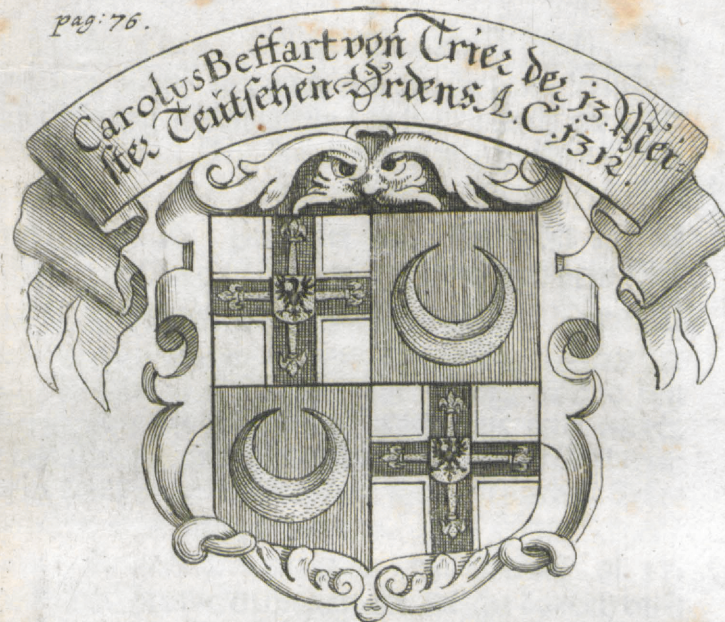 pag: 76.
Carolus Beffart von Trier der 13. Mei-
ster Teütschen Ordens. A. C. 1312.